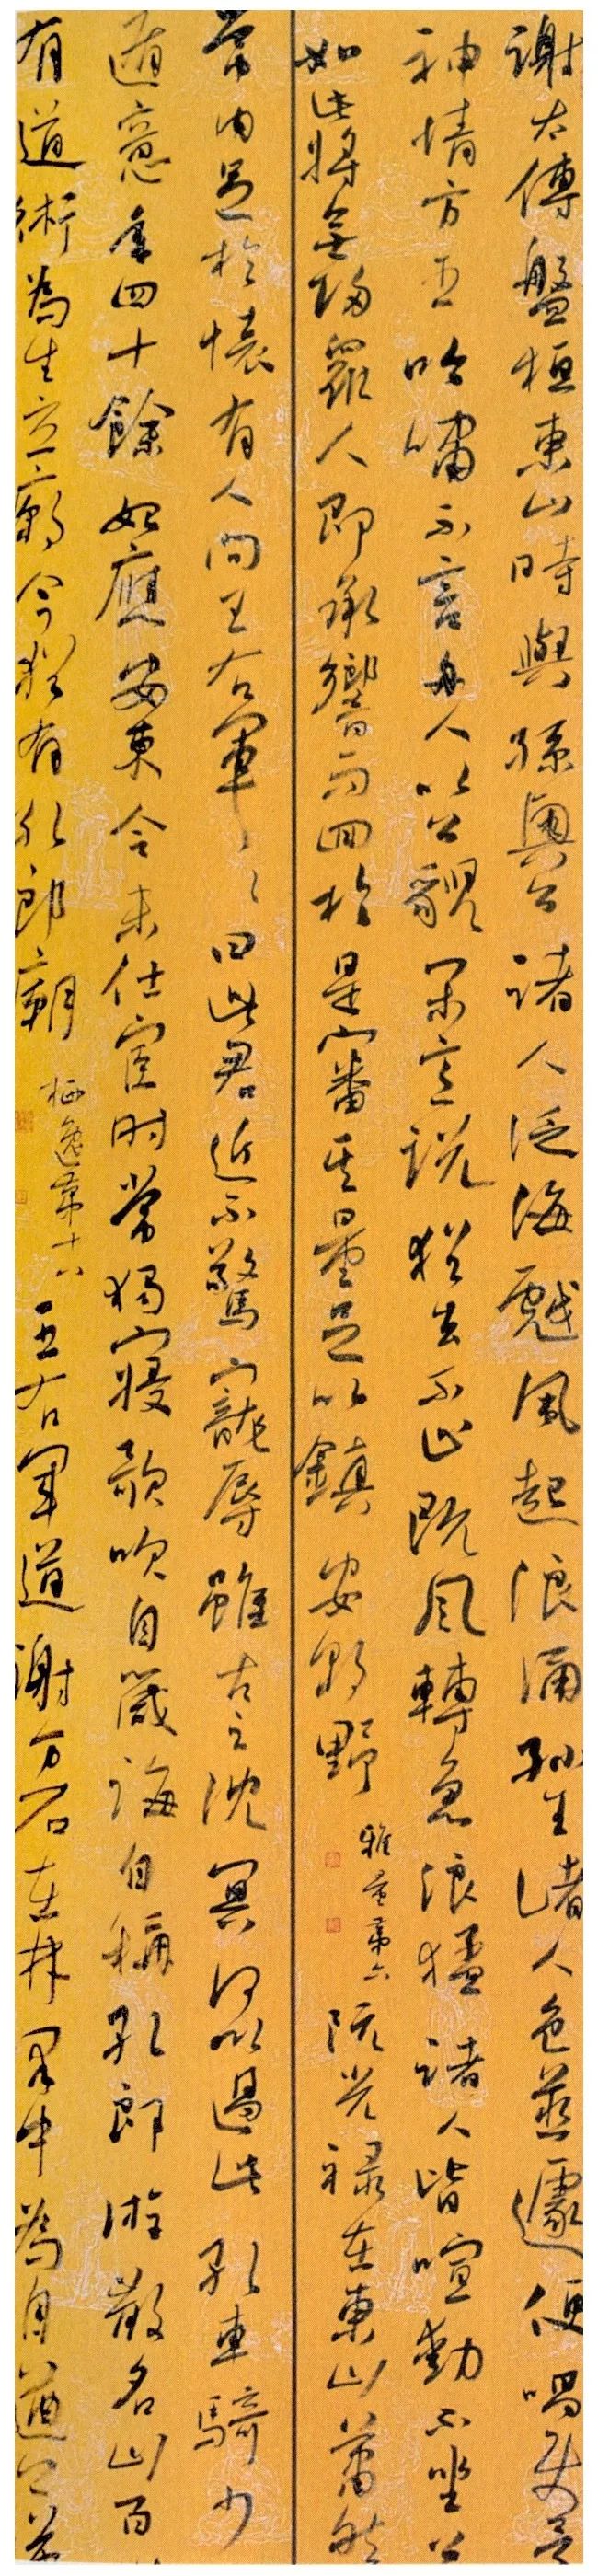 謝太傅盤桓東山時與孫興公諸人泛海戲風起浪涌孫王諸人色並遽便唱使還
神情方王吟嘯不言舟人以公貌閑意說猶去不止既風轉急浪猛諸人皆喧動不坐公
如此將無歸衆人即承響而回於是審其量足以鎮安朝野
雅量第六
阮光祿在東山蕭然
常內足於懷有人問王右軍〻〻曰此君近不驚寵辱雖古之沈冥何以過此孔車騎少
遁意年四十餘始應安東命未仕宦時常獨寢歌吹自箴誨自稱孔郎遊散名山百
有道術為生立廟今猶有孔郎廟
栖逸第十八
王右軍道謝萬石在林澤中為自遒上